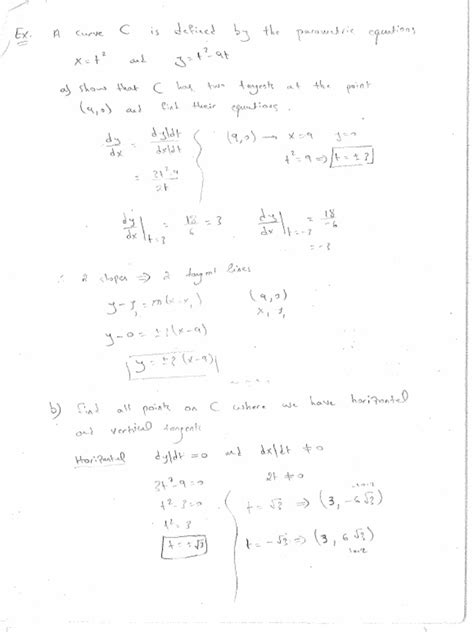 Ex. A curve C is defined by the parametric equations
x = t² and y = t³ - 9t
a) show that C has two tangents at the point
(9,0) and find their equations.
dy/dx = (dy/dt)/(dx/dt) (9,0) → x=9 y=0
= (3t²-9)/2t t²=9 ⇒ t = ±3
dy/dx|t=3 = 18/6 = 3 dy/dx|t=-3 = 18/-6
= -3
∴ 2 slopes ⇒ 2 tangent lines
y-y₁ = m(x-x₁) (9,0)
x₁ y₁
y-0 = ±3(x-9)
y = ±3(x-9)
b) find all points on C where we have horizontal
and vertical tangents
Horizontal dy/dt = 0 and dx/dt ≠ 0
3t²-9=0 2t ≠ 0
t²-3=0 t = √3 ⇒ (3, -6√3)
t²=3
t = ±√3 t = -√3 ⇒ (3, 6√3)